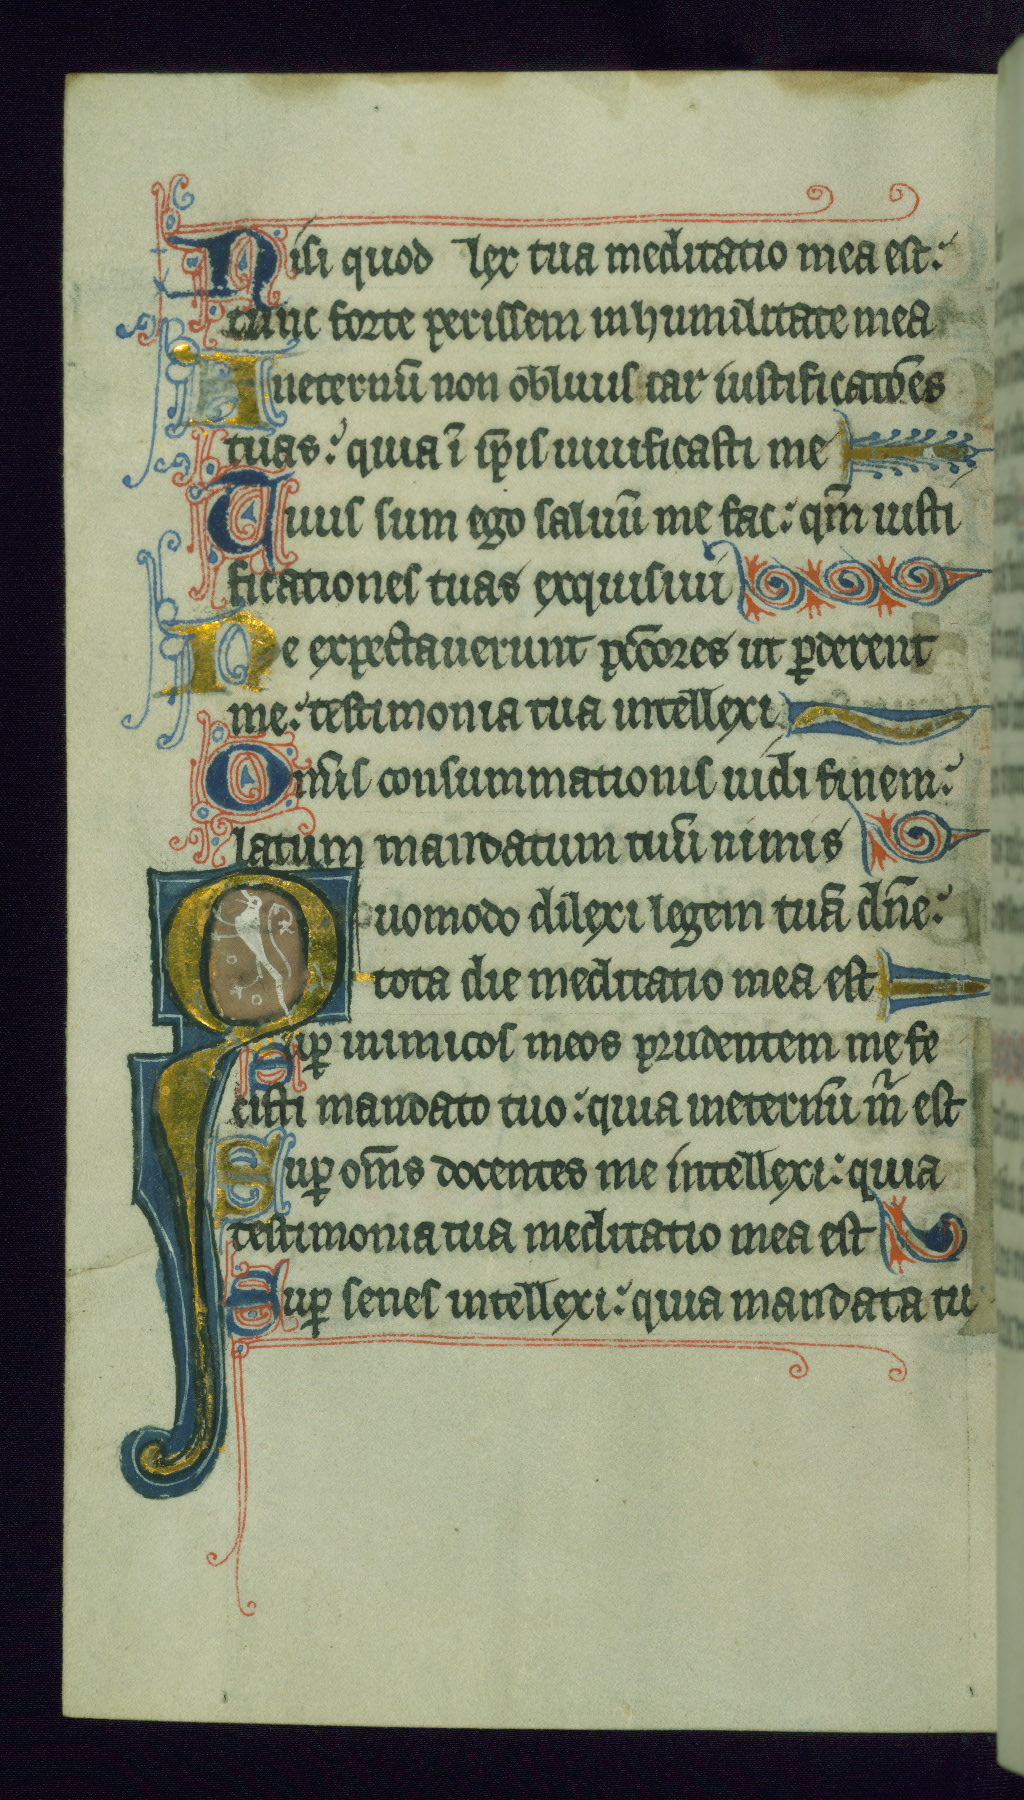 Nisi quod lex tua meditatio mea est:
tunc forte perissem in humilitate mea
In eternū non obliuiscar iustificatōes
tuas: quia ī ip̄is uiuificasti me
Tuus sum ego saluū me fac: qm̄ iusti
ficationes tuas exquisiui
Me expectauerunt pc̄cōres ut ꝑderent
me: testimonia tua intellexi
Omīs consummationis uidi finem:
latum mandatum tuū nimis
Quomodo dilexi legem tuā dn̄e:
tota die meditatio mea est
Suꝑ inimicos meos prudentem me fe
cisti mandato tuo: quia in eternū m̄ est
Suꝑ om̄s docentes me intellexi: quia
testimonia tua meditatio mea est
Suꝑ senes intellexi: quia mandata tu